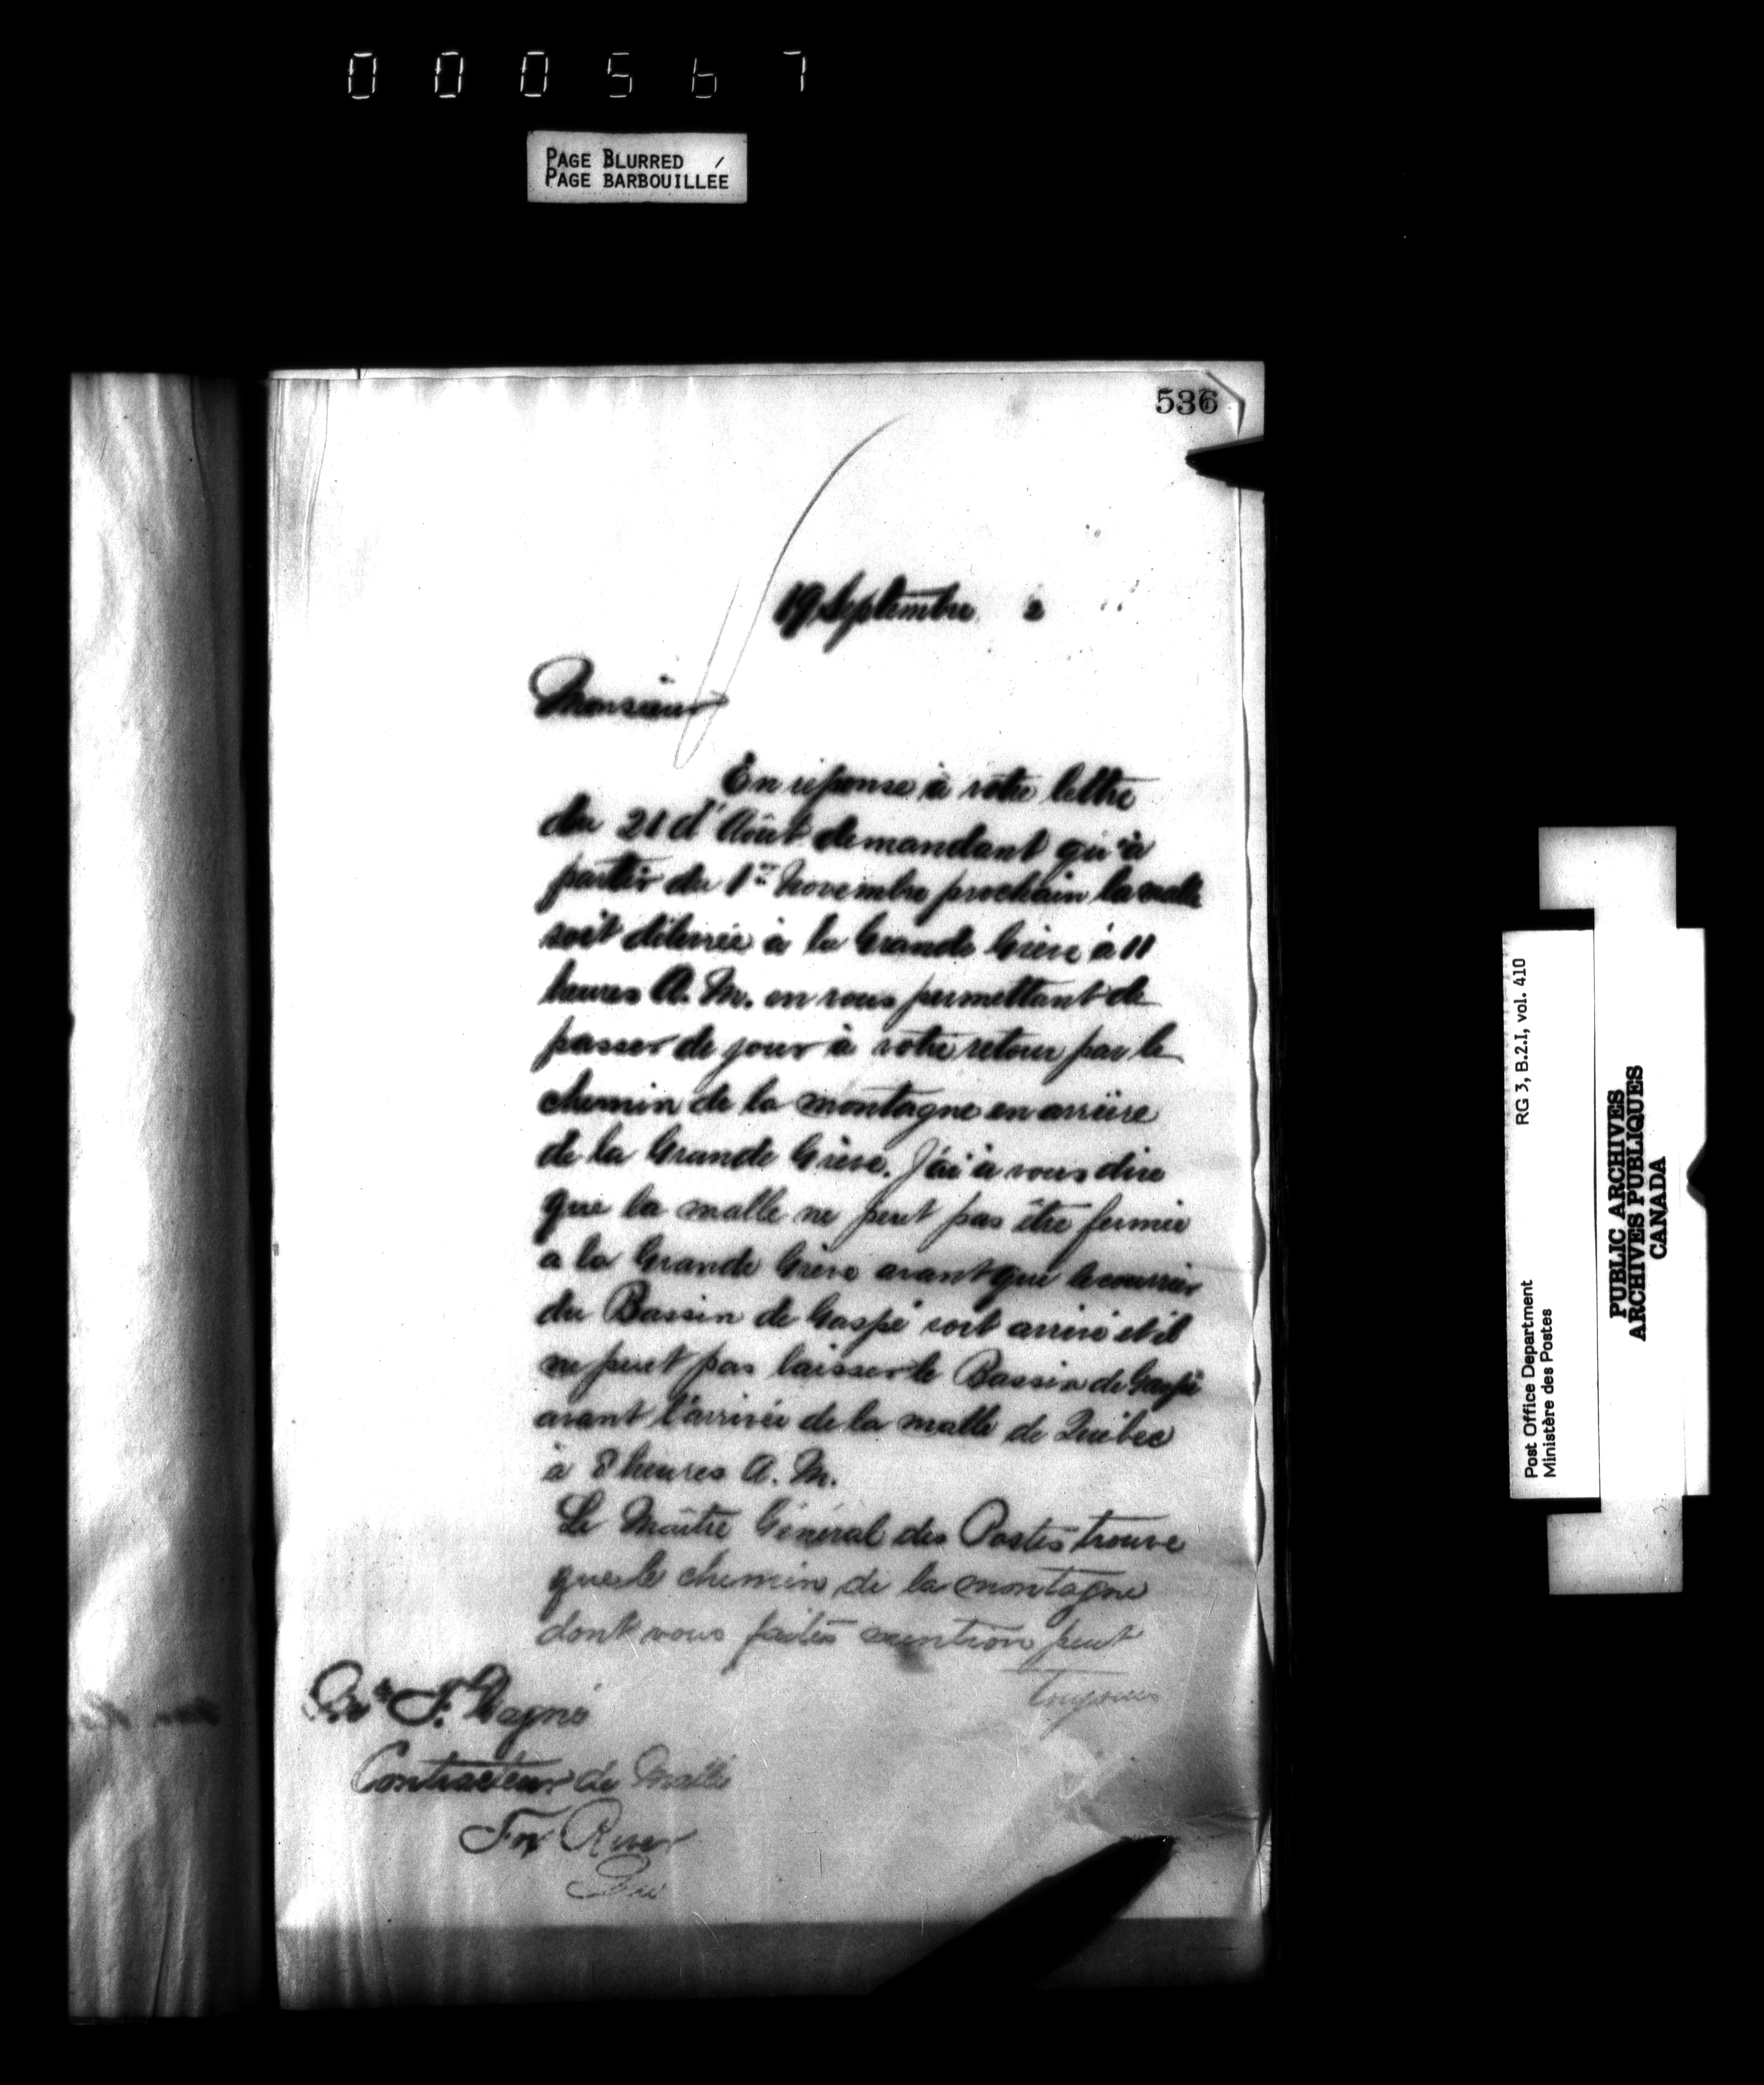 000567
PAGE BLURRED
PAGE BARBOUILLÉE
536
19 Septembre 2
Monsieur
En réponse à votre lettre
du 21 d'Août demandant qu'à
partir du 1er Novembre prochain la malle
soit délivrée à la Grande Grève à 11
heures A. M. en vous permettant de
passer de jour à votre retour par le
chemin de la montagne en arrière
de la Grande Grève. J'ai à vous dire
que la malle ne peut pas être fermée
a la Grande Grève avant que le courrier
du Bassin de Gaspé soit arrivé et il
ne peut pas laisser le Bassin de Gaspé
avant l'arrivée de la malle de Québec
à 8 heures A. M.
Le Maître Général des Postes trouve
que le chemin de la montagne
dont vous faites mention peut
toujours
F. Gagné
Contracteur de Malle
Fox River
Post Office Department
Ministère des Postes
RG 3, B.2.I, vol. 410
PUBLIC ARCHIVES
ARCHIVES PUBLIQUES
CANADA